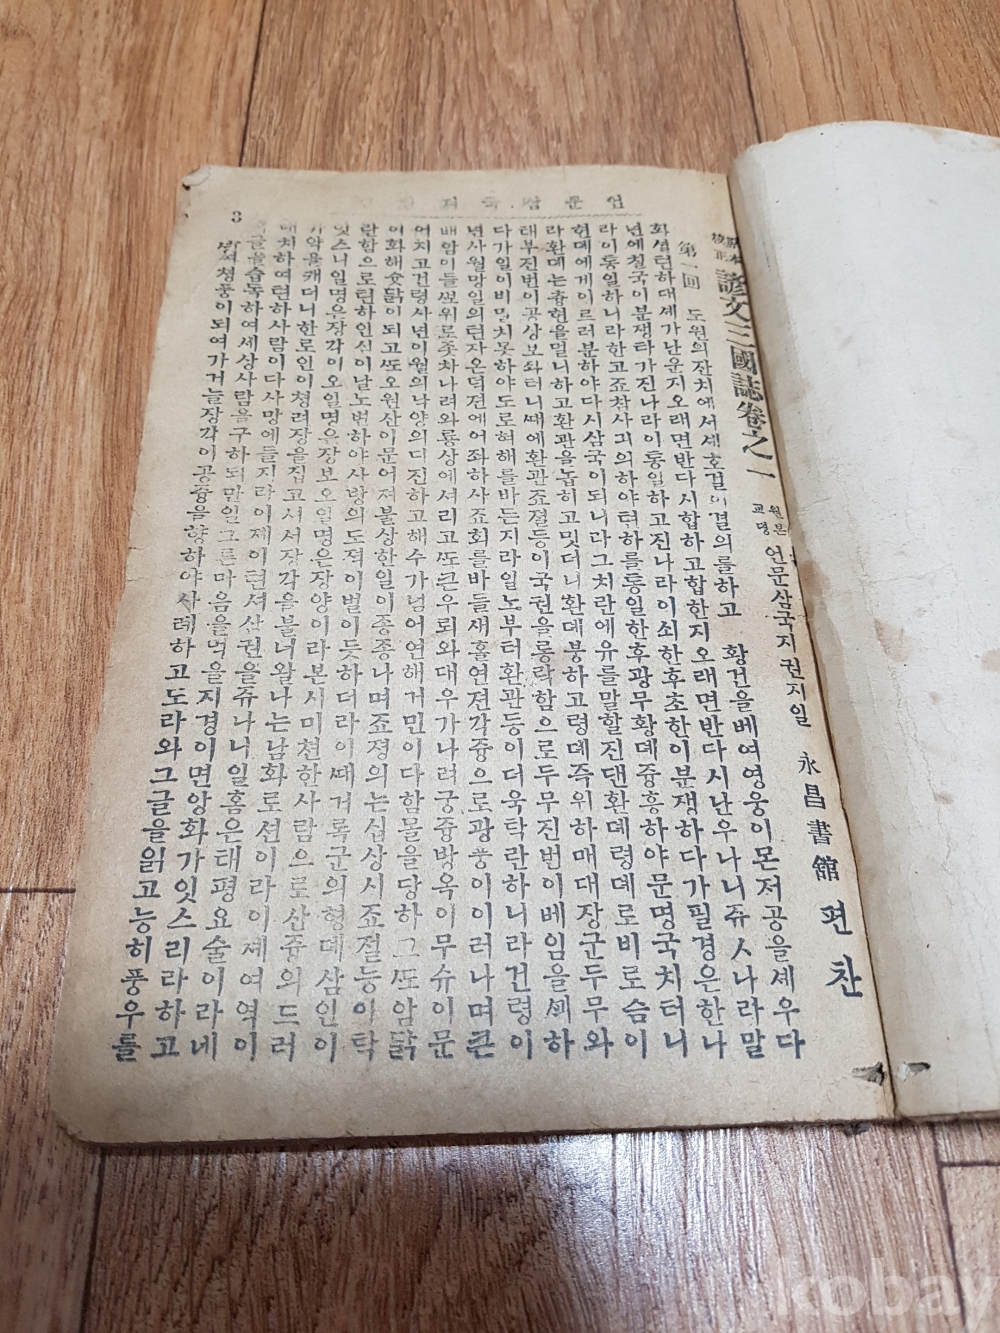 언문삼국지
3
原本
校正 諺文三國誌卷之一 원본
교뎡 언문삼국지권지일 永昌書館 편찬
第一回 도원의잔치에서셰호걸이결의를하고 황건을베여영웅이몬저공을셰우다
화셜텬하대셰가난운지오래면반다시합하고합한지오래면반다시난우나니쥬ㅅ나라말
년에칠국이분쟁타가진나라이통일하고진나라이쇠한후초한이분쟁하다가필경은한나
라이통일하니라한고죠참사긔의하야텬하를통일한후광무황뎨즁흥하야문명국치터니
현뎨에게이르러분하야다시삼국이되니라그치란에유를말할진댄환뎨령뎨로비로슴이
라환뎨는츙현을멀니하고환관을놉히고밋더니환뎨붕하고령뎨즉위하매대장군두무와
태부진번이공상보좌터니때에환관죠졀등이국권을롱락함으로두무진번이베임을셰하
다가일이비밀치못하야도로혀해를바든지라일노부터환관등이더욱탁란하니라건령이
년사월망일의련자온뎍뎐에어좌하사죠회를바들새홀연뎐각즁으로광풍이이러나며큰
배암이들보위로좃차나려와룡상에셔리고또큰우뢰와대우가나려궁즁방옥이무슈이문
어지고건령사년이월의낙양의디진하고해수가넘어연해거민이다함몰을당하그또암닭
이화해슛닭이되고또오원산이문어져불상한일이종종나며죠졍의는십상시죠졀등이탁
란함으로텬하인심이날노범하야사방의도젹이벌이듯하더라이때거록군의형뎨삼인이
잇스니일명은장각이오일명은장보오일명은장양이라본시미쳔한사람으로산즁의드러
가약을캐더니한로인이쳥려장을집고셔서장각을불너왈나는남화로션이라이졔여역이
대치하여텬하사람이다사망에들지라이제이텬셔산권을쥬나니일홈은태평요술이라네
글을습독하여세상사람을구하되만일그른마음을먹을지경이면앙화가잇스리라하고
셔쳥풍이되여가거늘장각이공즁을향하야사례하고도라와그글을읽고능히풍우를
kobay